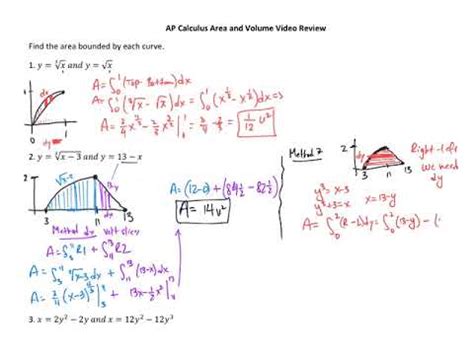 AP Calculus Area and Volume Video Review
Find the area bounded by each curve.
1. y = ∛x and y = √x
A = ∫₀¹ (Top - Bottom) dx
A = ∫₀¹ (∛x - √x) dx = ∫₀¹ (x^⅓ - x^½) dx =>
A = 3/4 x^4/3 - 2/3 x^3/2 |₀¹ = 3/4 - 2/3 = 1/12 u²
dx
dy
1
2. y = ∛x-3 and y = 13 - x
2
∛x-3
13-x
3 11 13
Method dx vertt slices
A = ∫₃¹¹ R1 + ∫₁₁¹³ R2
A = ∫₃¹¹ ∛x-3 dx + ∫₁₁¹³ (13-x) dx
A = 3/4 (x-3)^4/3 |₃¹¹ + 13x - ½x² |₁₁¹³
A = (12-0) + (84½ - 82½)
A = 14u²
Method 2
2
dy
3 11 13
Right-left
we need
dy
y³ = x-3 x = 13-y
y³+3 = x
A = ∫₀² (R-L) dy = ∫₀² (13-y) - (
3. x = 2y² - 2y and x = 12y² - 12y³